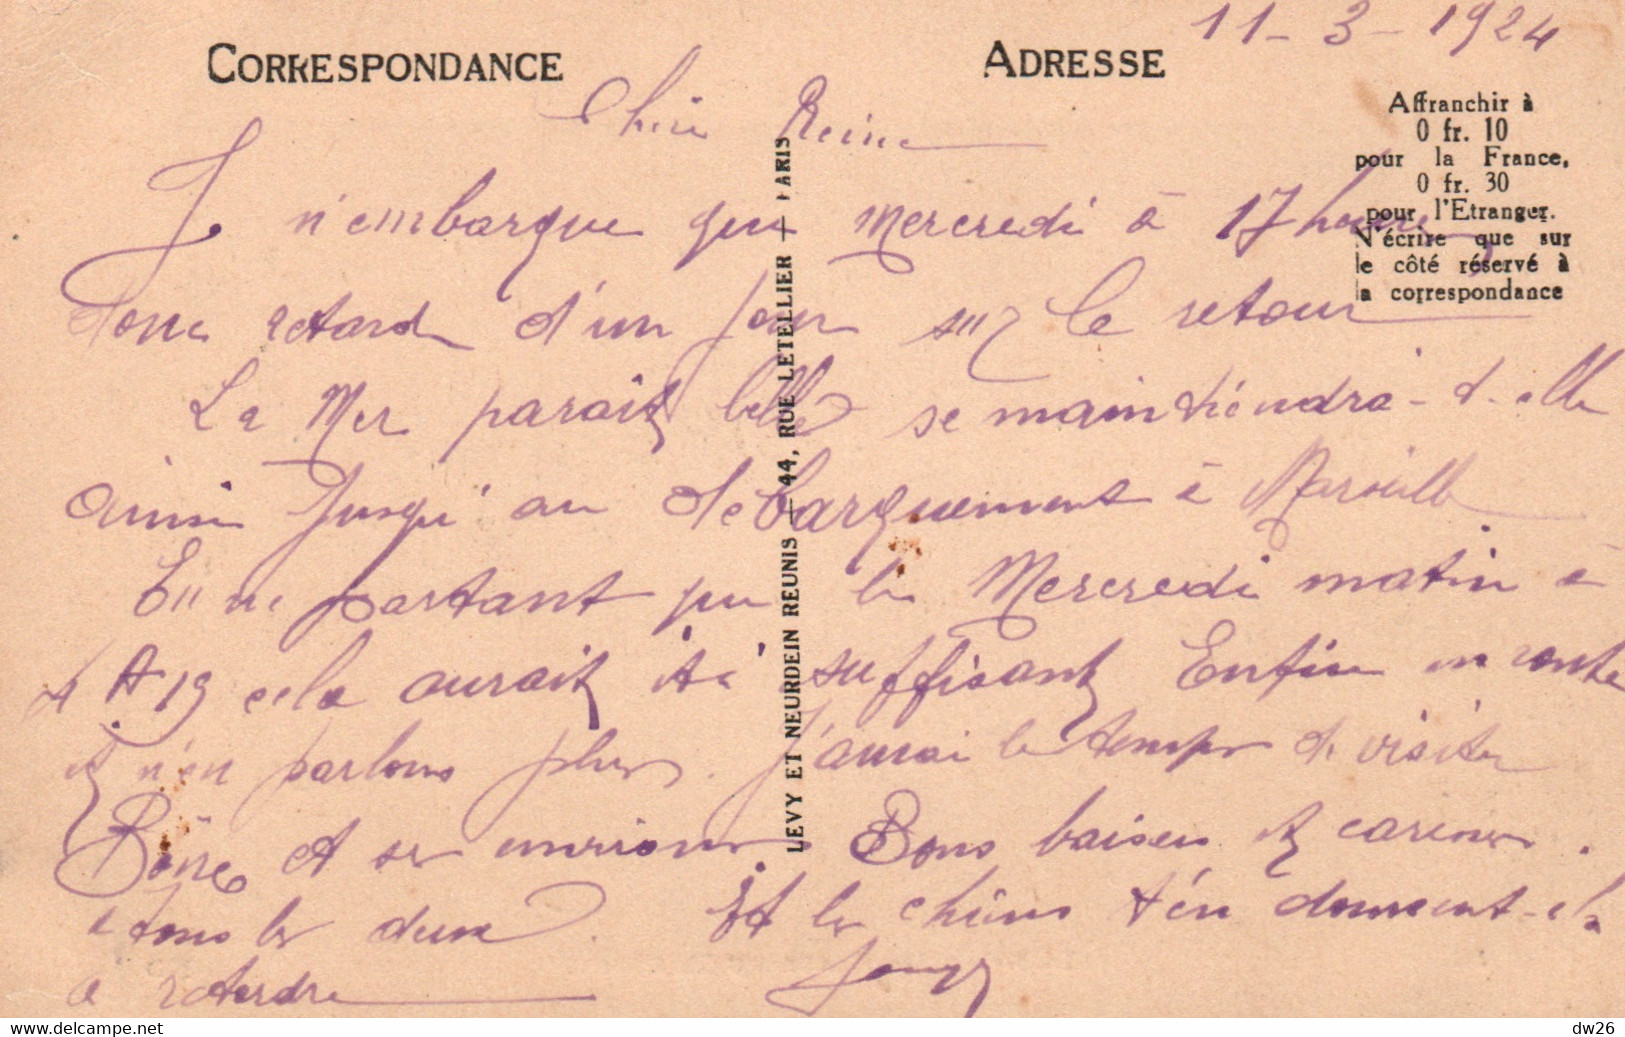 11-3-1924
CORRESPONDANCE
ADRESSE
Affranchir à
0 fr. 10
pour la France,
0 fr. 30
pour l'Etranger.
N'écrire que sur
le côté réservé à
la correspondance
LEVY ET NEURDEIN REUNIS — 44, RUE LETELLIER — PARIS
Chère Reine
Je n'embarque que Mercredi à 17 heures
donc retard d'un jour sur le retour
La Mer parait belle se maintiendra-t-elle
ainsi jusqu'au débarquement à Marseille
En ne partant que le Mercredi matin à
cela aurait été suffisant Enfin en route
et n'en parlons plus. J'aurai le temps de visiter
Bône et ses environs. Bons baisers et caresses.
à tous les deux. Et les chiens t'en donnent-ils
à retordre